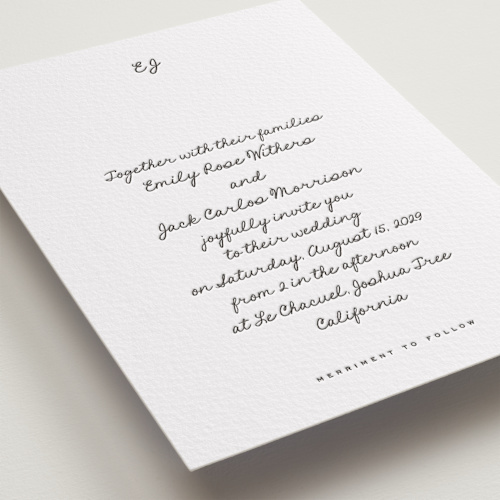 EJ
Together with their families
Emily Rose Withers
and
Jack Carlos Morrison
joyfully invite you
to their wedding
on Saturday, August 15, 2029
from 2 in the afternoon
at Le Chacuel, Joshua Tree
California
MERRIMENT TO FOLLOW